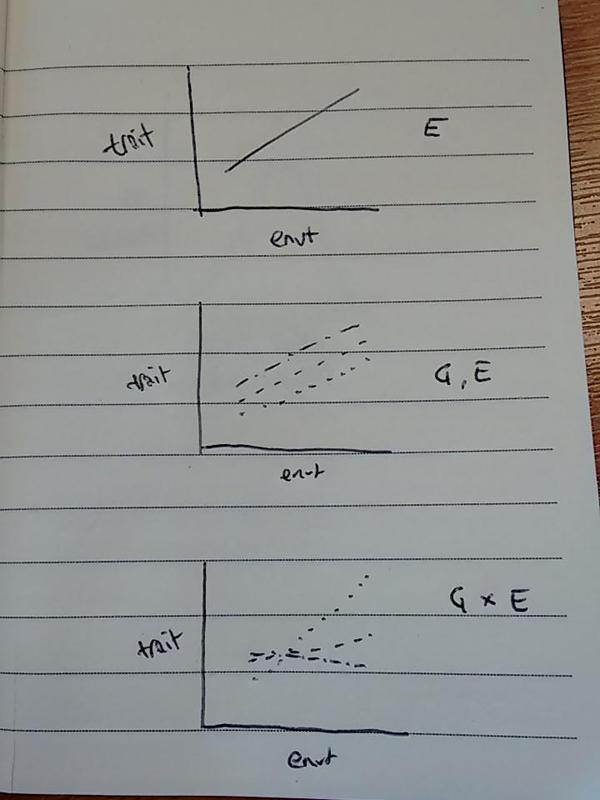 trait
E
envt
trait
G, E
envt
trait
G x E
envt